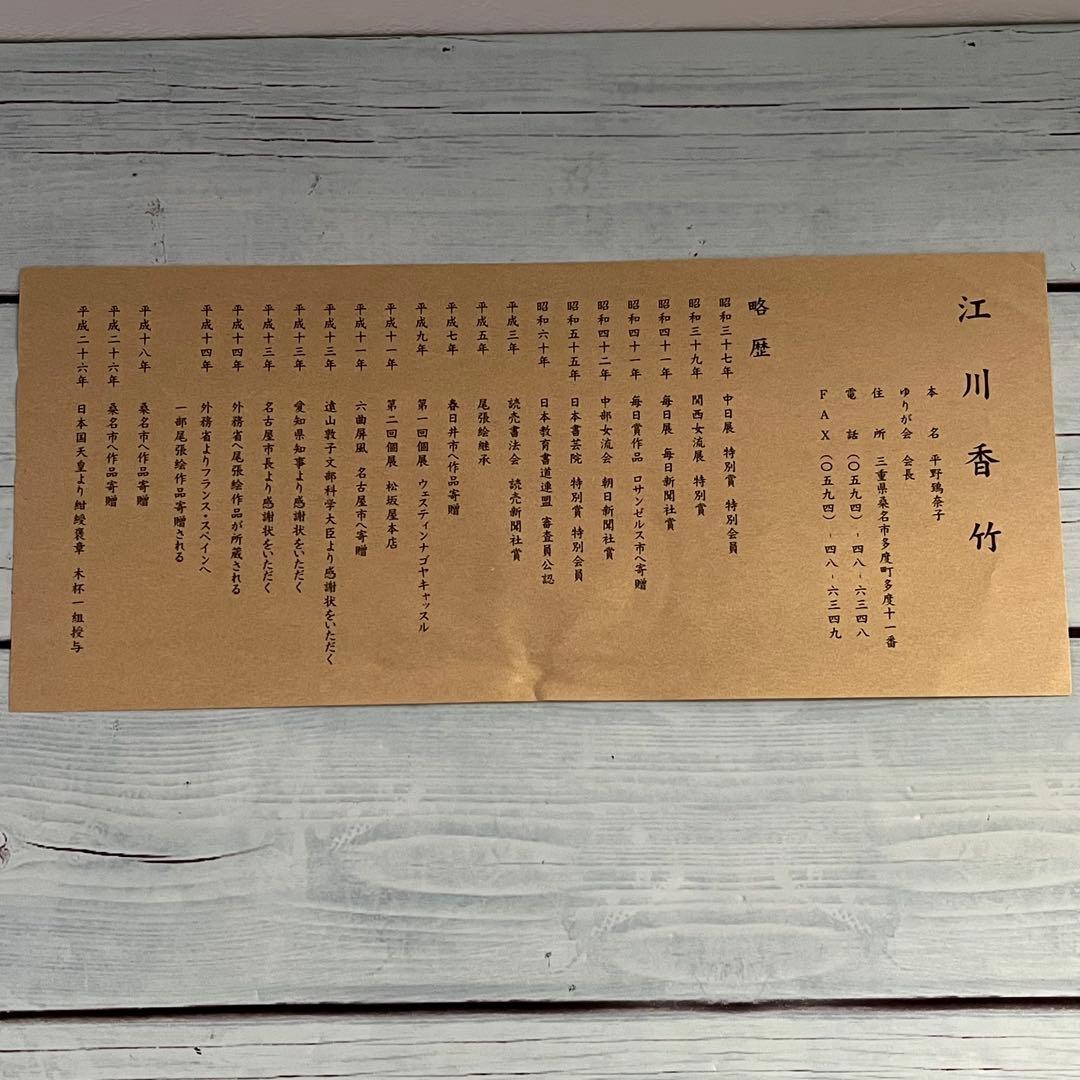 江川香竹
本名 平野鴇奈子
ゆりが会 会長
住所 三重県桑名市多度町多度十一番
電話(〇五九四)-四八-六三四八
FAX(〇五九四)-四八-六三四九
略歴
昭和三十七年 中日展 特別賞 特別会員
昭和三十九年 関西女流展 特別賞
昭和四十一年 毎日展 毎日新聞社賞
昭和四十一年 毎日賞作品 ロサンゼルス市へ寄贈
昭和四十二年 中部女流会 朝日新聞社賞
昭和五十五年 日本書芸院 特別賞 特別会員
昭和六十年 日本教育書道連盟 審査員公認
平成三年 読売書法会 読売新聞社賞
平成五年 尾張絵継承
平成七年 春日井市へ作品寄贈
平成九年 第一回個展 ウェスティンナゴヤキャッスル
平成十一年 第二回個展 松坂屋本店
平成十一年 六曲屏風 名古屋市へ寄贈
平成十三年 遠山敦子文部科学大臣より感謝状をいただく
平成十三年 愛知県知事より感謝状をいただく
平成十三年 名古屋市長より感謝状をいただく
平成十四年 外務省へ尾張絵作品が所蔵される
平成十四年 外務省よりフランス・スペインへ
一部尾張絵作品寄贈される
平成十八年 桑名市へ作品寄贈
平成二十六年 桑名市へ作品寄贈
平成二十六年 日本国天皇より紺綬褒章 木杯一組授与